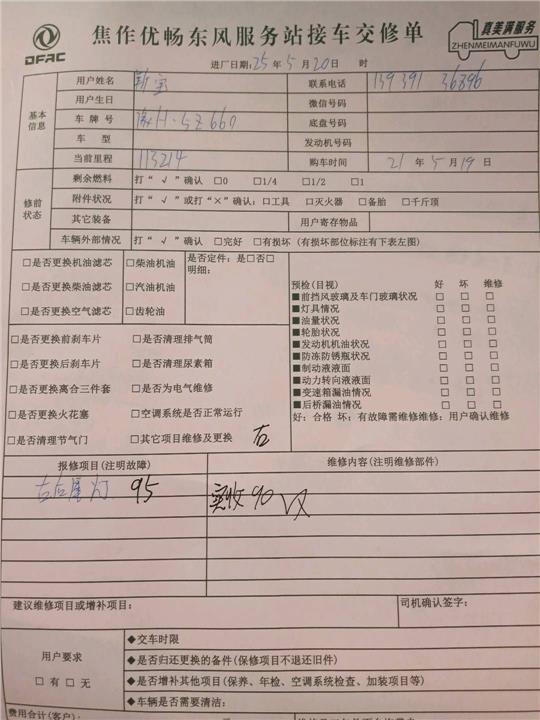 DFAC
焦作优畅东风服务站接车交修单
真美满服务
ZHENMEIMANFUWU
进厂日期:25年5月20日 时
基本信息
用户姓名 联系电话 139391 36896
用户生日 微信号码
车牌号 底盘号码
车型 发动机号码
当前里程 113214 购车时间 21年5月19日
修前状态
剩余燃料 打“√”确认 □0 □1/4 □1/2 □1
附件状况 打“√”或打“×”确认:□工具 □灭火器 □备胎 □千斤顶
其它装备 用户寄存物品
车辆外部情况 打“√”确认 □完好 □有损坏(有损坏部位标注有下表左图)
□是否更换机油滤芯 □柴油机油 是否定件:是□否□
明细:
□是否更换柴油滤芯 □汽油机油
□是否更换空气滤芯 □齿轮油
预检(目视) 好 坏 维修
■前挡风玻璃及车门玻璃状况 □ □ □
■灯具情况 □ □ □
■油量状况 □ □ □
■轮胎状况 □ □ □
■发动机机油状况 □ □ □
■防冻防锈瓶状况 □ □ □
■制动液液面 □ □ □
■动力转向液液面 □ □ □
■变速箱漏油情况 □ □ □
■后桥漏油情况 □ □ □
好:合格 坏:有故障需维修维修:用户确认维修
□是否更换前刹车片 □是否清理排气筒
□是否更换后刹车片 □是否清理尿素箱
□是否更换离合三件套 □是否为电气维修
□是否更换火花塞 □空调系统是否正常运行
□是否清理节气门 □其它项目维修及更换 右
报修项目(注明故障) 维修内容(注明维修部件)
右后尾灯 95 实收90
建议维修项目或增补项目: 司机确认签字:
用户要求
□有□无
◆交车时限
◆是否归还更换的备件(保修项目不退还旧件)
◆是否增补其他项目(保养、年检、空调系统检查、加装项目等)
◆车辆是否需要清洁:
费用合计(客户):